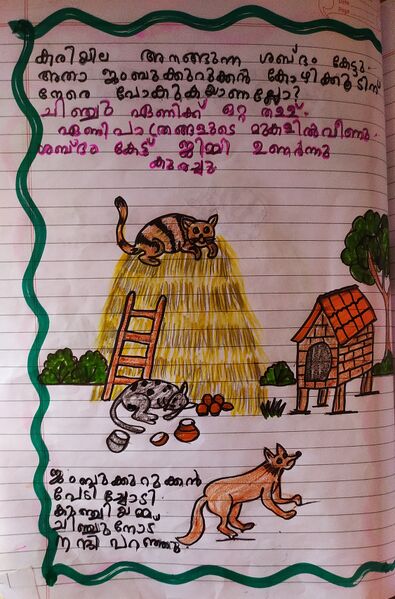 കരിയില അനങ്ങുന്ന ശബ്ദം കേട്ടു.
അതാ ജംബുക്കുറുക്കൻ കോഴിക്കൂടിന്
നേരെ പോകുകയാണല്ലോ?
ചിഞ്ചു ഏണിക്ക് ഒറ്റ തള്ള്.
ഏണി പാത്രങ്ങളുടെ മുകളിൽ വീണു.
ശബ്ദം കേട്ട് ജിമ്മി ഉണർന്നു
കുരച്ചു.
ജംബുക്കുറുക്കൻ
പേടിച്ചോടി.
കുഞ്ഞിയമ്മ
ചിഞ്ചുനോട്
നന്ദി പറഞ്ഞു.